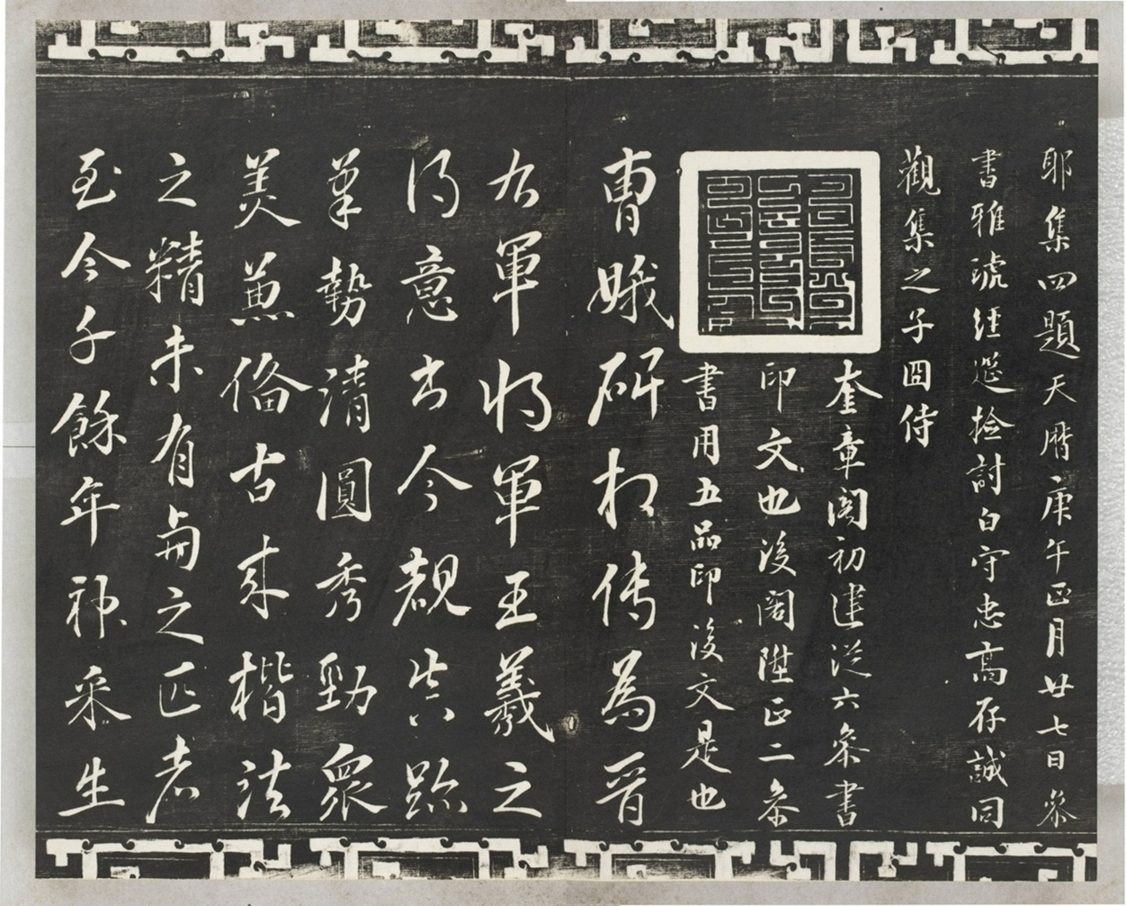 耶集四題天曆庚午正月廿七日叅
書雅琥經筵撿討白守忠高存誠同
觀集之子囧侍
奎章閣初建從六叅書
印文也後閣陞正二叅
書用五品印後文是也
曹娥碑相傳為晉
右軍將軍王羲之
得意書今覩真跡
筆勢清圓秀勁衆
美兼俻古來楷法
之精未有與之匹者
至今千餘年神采生